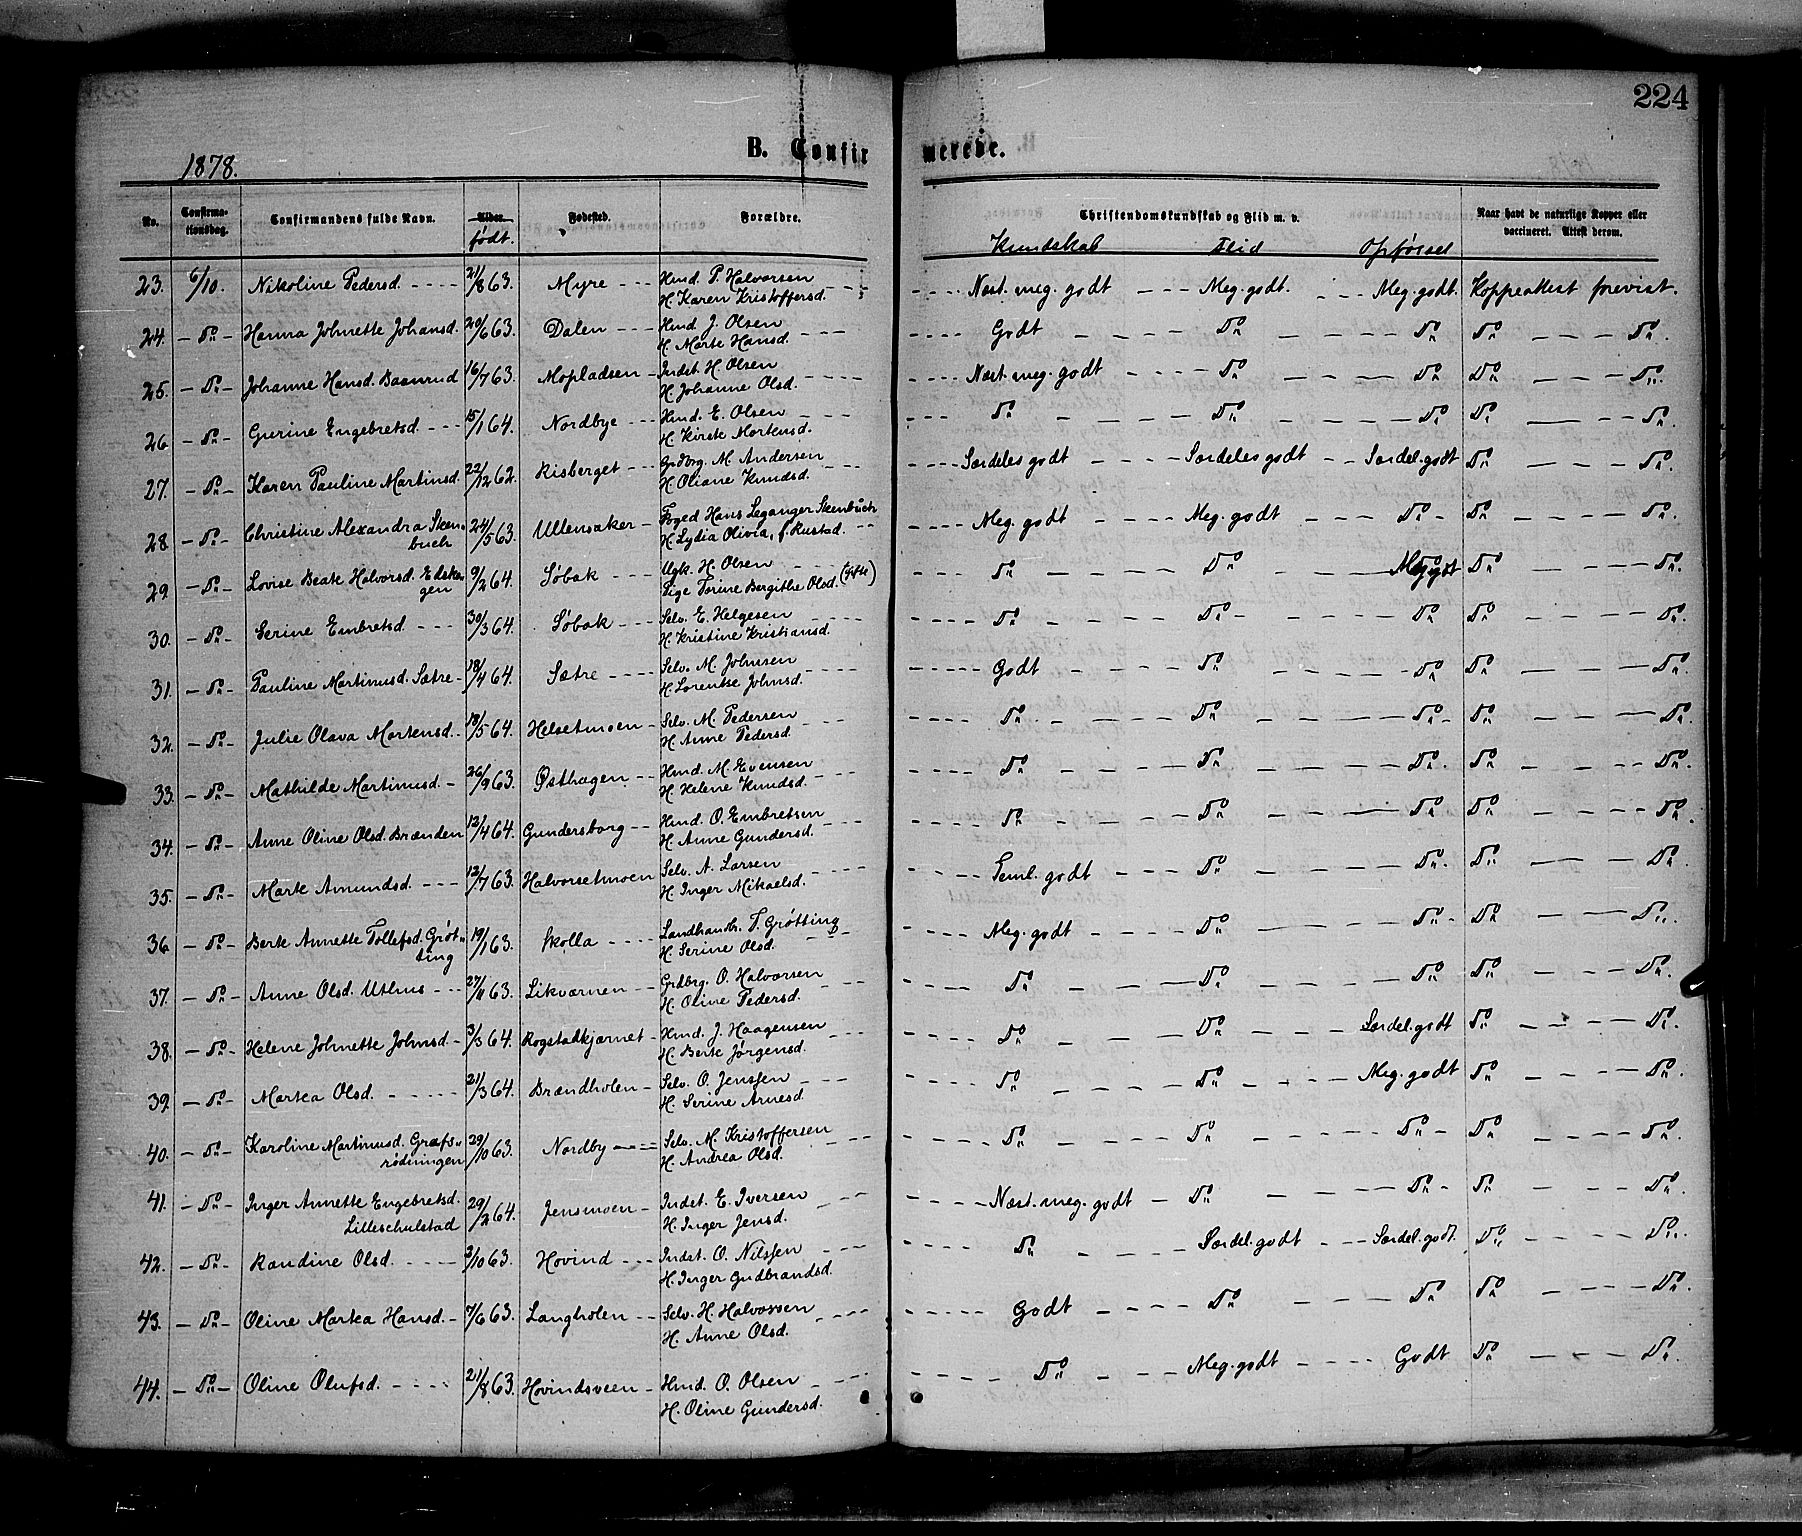 224
1878.
B. Confirmerede.
No. Confirmationsdag. Confirmandens fulde Navn. Alder. født. Fødested. Forældre. Christendomskundskab og Flid m. v. Naar havt de naturlige Kopper eller vaccineret. Attest derom.
Kundskab Flid Opførsel
23. 6/10. Nikoline Pedersd. 21/8 63. Myre Hmd. P. Halvorsen H. Karen Kristoffersd. Næst. meg. godt Meg. godt. Meg. godt. Koppeattest forevist.
24. Do Hanna Johnette Johansd. 20/6 63. Dalen Hmd J. Olsen H. Marte Hansd. Godt Do Do Do Do
25. Do Johanne Hansd. Baanrud 16/7 63. Mopladsen Indst. H. Olsen H. Johanne Olsd. Næst. meg. godt Do Do Do Do
26 Do Gurine Engebretsd. 15/1 64. Nordbye Hmd. E. Olsen H. Kirste Mortensd. Do Do Do Do Do
27. Do Karen Pauline Martinsd. 22/12 62. Risberget Grdbrg. M. Andersen H. Oliane Knudsd. Særdeles godt Særdeles godt Særdel. godt Do Do
28. Do Christine Alexandra Skenbuch 24/5 63. Ullensaker Foged Hans Leganger Skenbuch H. Lydia Olivia, f. Rustad. Meg. godt Meg. godt Do Do Do
29 Do Lovise Beate Halvorsd. Edskogen 9/2 64. Søbak Ugk. H. Olsen Pige Torine Bergithe Olsd. (gfte) Do Do Meg. godt Do Do
30. Do Serine Embretsd 30/3 64. Søbak Selv. E. Helgesen H. Kristine Kristiansd. Do Do Do Do Do
31. Do Pauline Martinusd. Sætre 18/4 64. Sætre Selv. M. Johnsen H. Lorentse Johnsd. Godt Do Do Do Do
32. Do Julie Olava Mortensd. 18/5 64. Helsetmoen Selv. M. Pedersen H. Anne Pedersd. Do Do Do Do Do
33. Do Mathilde Martinusd. 26/9 63. Østhagen Hmd. M. Evensen H. Helene Knudsd. Do Do Do Do Do
34. Do Anne Oline Olsd. Brænden 12/4 64. Gundersborg Hmd. O. Embretsen H. Anne Gundersd. Do Do Do Do Do
35. Do Marte Amundsd. 12/7 63. Halvorsetmoen Selv. A. Larsen H. Inger Mikaelsd. Teml. godt Do Do Do Do
36 Do Berte Annette Tollefsd. Grøtting 19/1 63. Skolla Landhandh. T. Grøtting H. Serine Olsd. Meg. godt Do Do Do Do
37. Do Anne Olsd. Uthus 63. Likværnen Grdbrg. O. Halvorsen H. Oline Pedersd. Do Do Do Do Do
38. Do Helene Johnette Johnsd. 3/3 64. Rogstadkjærnet Hmd. J. Haagensen H. Berte Jørgensd. Do Do Særdel. godt Do Do
39. Do Martea Olsd. 21/3 64. Brændholen Selv. O. Jensen H. Serine Arnesd. Do Do Meg. godt Do Do
40. Do Karoline Martinusd. Græfsrødningen 29/10 63. Nordby Selv. M. Kristoffersen H. Andrea Olsd. Do Do Do Do Do
41. Do Inger Annette Engebretsd. Lilleschulstad 29/2 64. Jensmoen Indst. E. Iversen H. Inger Jensd. Næst. meg. godt Do Do Do Do
42. Do Randine Olsd. 3/10 63. Hovind Indst. O. Nilssen H. Inger Gudbrandsd. Do Særdel. godt Særdel. godt. Do Do
43. Do Oline Martea Hansd. 7/6 63. Langholen Selv. H. Halvorsen H. Anne Olsd. Godt Do Do Do Do
44. Do Oline Olufsd. 21/8 63. Hovindsveen Hmd. O. Olsen H. Oline Gundersd. Do Meg. godt Godt Do Do